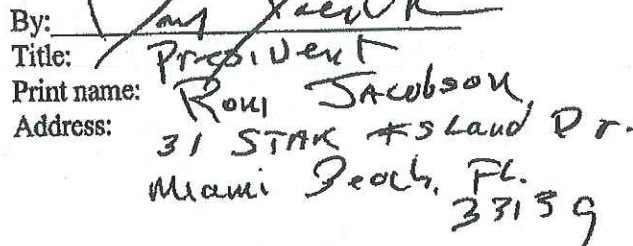 By:
Title: President
Print name: Roni Jacobson
Address: 31 STAR Island Dr.
Miami Beach, FL.
33139